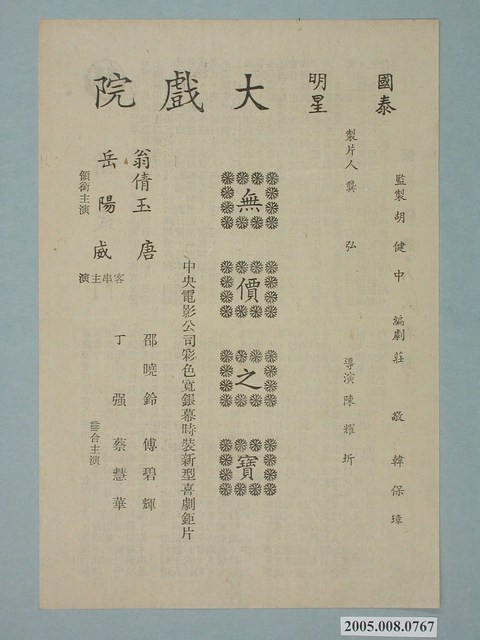 國泰
明星
大戲院
監製 胡健中 編劇 莊敬 韓保璋
製片人 龔弘 導演 陳耀圻
無價之寶
中央電影公司彩色寬銀幕時裝新型喜劇鉅片
翁倩玉 唐威 客串主演
岳陽 領銜主演
邵曉鈴 傅碧輝
丁強 蔡慧華 合主演
2005.008.0767